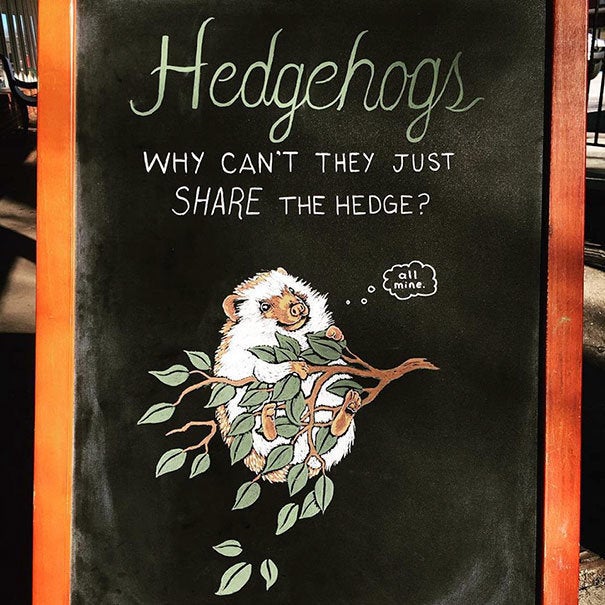 Hedgehogs
WHY CAN'T THEY JUST
SHARE THE HEDGE?
all
mine.